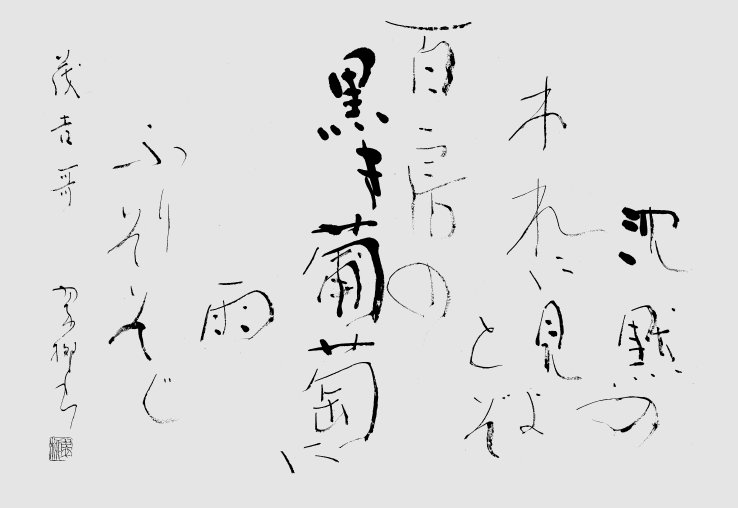 沈黙の
われに見よ
とぞ
百房の
黒き葡萄に
雨
ふりそそぐ
茂吉哥